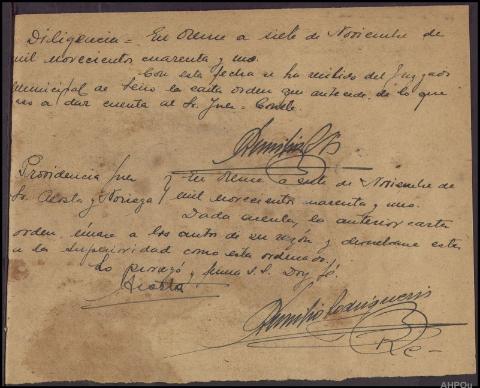 Diligencia = En Orense a siete de Noviembre de
mil novecientos cuarenta y uno.
Con esta fecha se ha recibido del Juzgado
Municipal de la carta orden que antecede, de lo que
a dar cuenta al Sr. Juez = Conste
Providencia Juez } En Orense a siete de Noviembre de
Sr. Acosta y Noriega } mil novecientos cuarenta y uno.
Dada cuenta, la anterior carta
orden, unase a los autos de su razón y devuelvase esta
a la Superioridad como esta ordenado.
Lo proveyó y firma S.S. Doy fé.
Acosta
Emilio Rodriguez
AHPOu